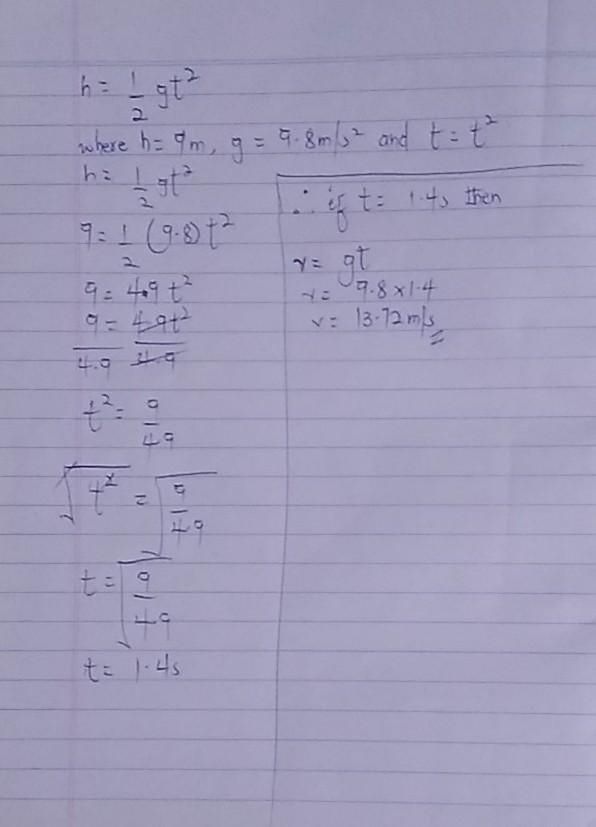 h = 1/2 gt²
where h = 9m, g = 9.8m/s² and t = t²
h = 1/2 gt²
9 = 1/2 (9.8)t²
9 = 4.9t²
9/4.9 = 4.9t²/4.9
t² = 9/49
√t² = √9/49
t = √9/49
t = 1.4s
∴ if t = 1.4s then
v = gt
v = 9.8 x 1.4
v = 13.72m/s